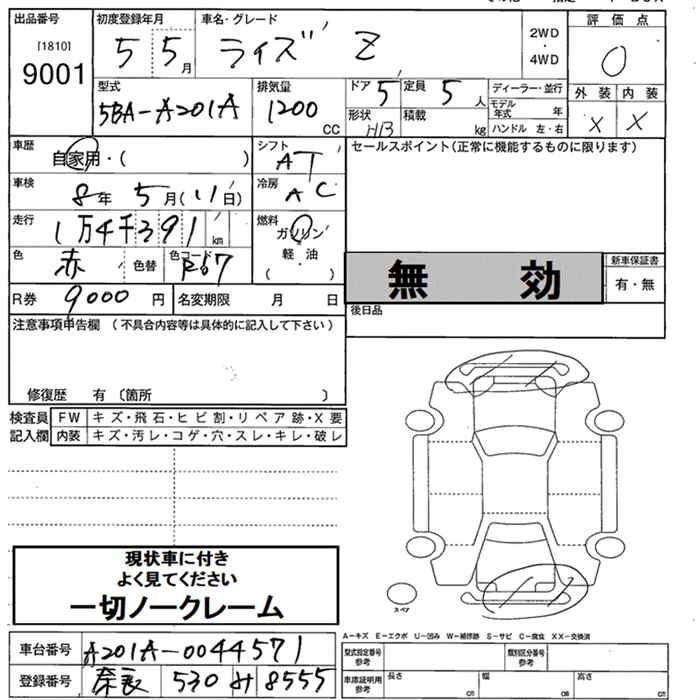 出品番号 初度登録年月 車名・グレード 評価点
[1810] 9001 5 5月 ライズ Z 2WD・4WD 0
型式 排気量 ドア 5 定員 5人 ディーラー・並行 外装 内装
5BA-A201A 1200 CC 形状 H/B 積載 kg モデル年式 年 X X
ハンドル 左・右
車歴 自家用・( ) シフト AT セールスポイント(正常に機能するものに限ります)
車検 8年 5月(11日) 冷房 AC
走行 1万4千391km 燃料 ガソリン・軽油( )
色 赤 色替 色コード R67 無効 新車保証書
有・無
R券 9000円 名変期限 月 日 後日品
注意事項申告欄(不具合内容等は具体的に記入して下さい)
修復歴 有(箇所 )
検査員 FW キズ・飛石・ヒビ割・リペア跡・X要
記入欄 内装 キズ・汚レ・コゲ・穴・スレ・キレ・破レ
現状車に付き
よく見てください
一切ノークレーム
スペア
A-キズ E-エクボ U-凹み W-補修跡 S-サビ C-腐食 XX-交換済
車台番号 A201A-0044571 型式指定番号 参考 類別区分番号 参考
登録番号 奈良 530 み 8555 車庫証明用 参考 長さ cm 幅 cm 高さ cm